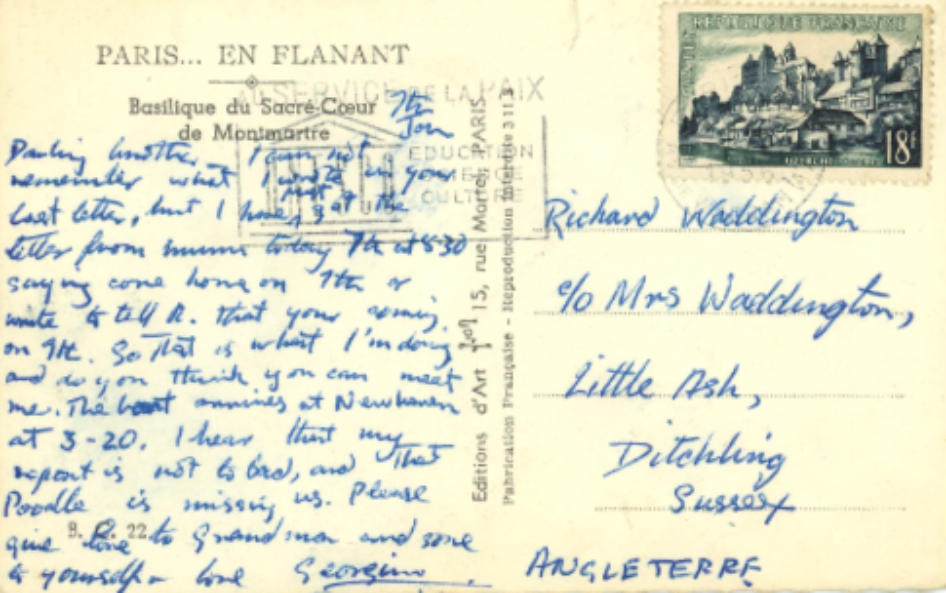 PARIS... EN FLANANT
Basilique du Sacré-Cœur
de Montmartre
7th
Jan
Darling brother, I can not
remember what I wrote in your
last letter, but I have just got the
letter from mums today 7th at 8.30
saying come home on 9th or
write to tell R. that your coming
on 9th. So That is what I'm doing
and do you think you can meet
me. The boat arrives at Newhaven
at 3-20. I hear that my
report is not to bad, and That
Poodle is missing us. Please
give love to Grandma and some
to yourself love Georgina
B. C. 22
AU SERVICE DE LA PAIX
EDUCATION
SCIENCE
CULTURE
Editions d'Art 15, rue Martel, PARIS
Fabrication Française - Reproduction Interdite
REPUBLIQUE FRANÇAISE
POSTES
UZERCHE
18f
1956
Richard Waddington
c/o Mrs Waddington,
Little Ash,
Ditchling
Sussex
ANGLETERRE